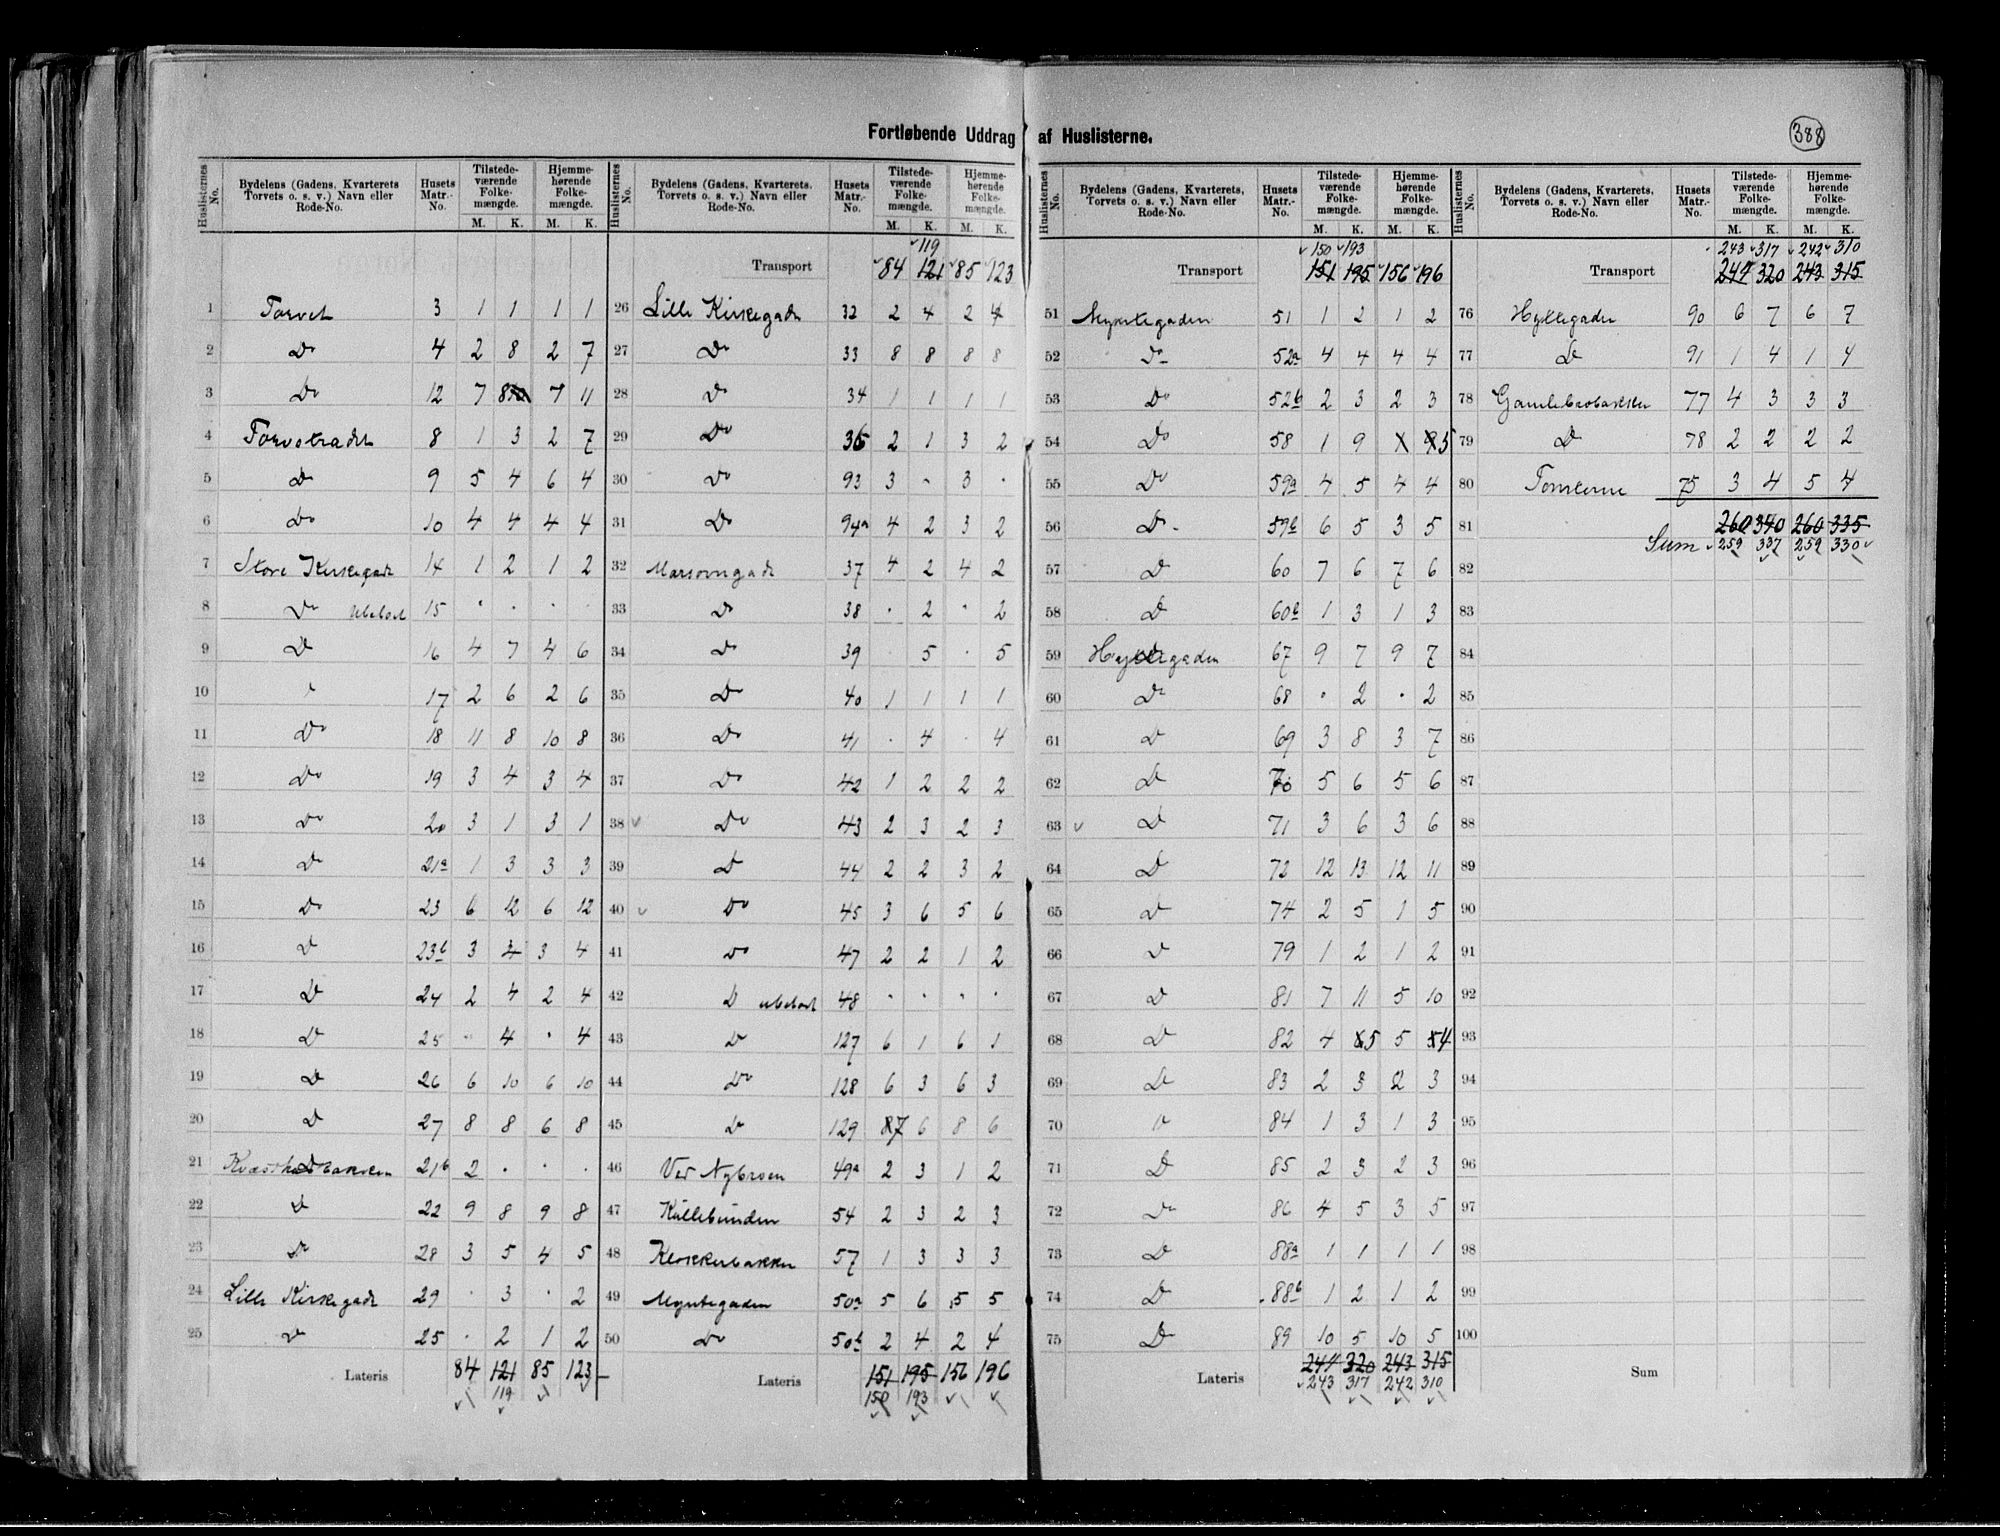 Fortløbende Uddrag af Huslisterne.
388
Huslisternes No. | Bydelens (Gadens, Kvarterets Torvets o. s. v.) Navn eller Rode-No. | Husets Matr.-No. | Tilstedeværende Folkemængde. M. K. | Hjemmehørende Folkemængde. M. K.
1 Torvet 3 1 1 1 1
2 Do 4 2 8 2 7
3 Do 12 7 8 7 11
4 Torvetradet 8 1 3 2 7
5 Do 9 5 4 6 4
6 Do 10 4 4 4 4
7 Store Kirkegade 14 1 2 1 2
8 Do Ubeboet 15 . . . .
9 Do 16 4 7 4 6
10 17 2 6 2 6
11 Do 18 11 8 10 8
12 Do 19 3 4 3 4
13 Do 20 3 1 3 1
14 Do 21a 1 3 3 3
15 Do 23 6 12 6 12
16 Do 23b 3 4 3 4
17 Do 24 2 4 2 4
18 Do 25 . 4 . 4
19 Do 26 6 10 6 10
20 Do 27 8 8 6 8
21 21b 2 . . .
22 Do 22 9 8 9 8
23 Do 28 3 5 4 5
24 Lille Kirkegade 29 . 3 . 2
25 Do 25 . 2 1 2
Lateris 84 121 85 123
119
Huslisternes No. | Bydelens (Gadens, Kvarterets, Torvets o. s. v.) Navn eller Rode-No. | Husets Matr.-No. | Tilstedeværende Folkemængde. M. K. | Hjemmehørende Folkemængde. M. K.
119
Transport 84 121 85 123
26 Lille Kirkegade 32 2 4 2 4
27 Do 33 8 8 8 8
28 Do 34 1 1 1 1
29 Do 36 2 1 3 2
30 Do 93 3 . 3 .
31 Do 94a 4 2 3 2
32 Marsvingade 37 4 2 4 2
33 Do 38 . 2 . 2
34 Do 39 . 5 . 5
35 Do 40 1 1 1 1
36 Do 41 . 4 . 4
37 Do 42 1 2 2 2
38 Do 43 2 3 2 3
39 Do 44 2 2 3 2
40 Do 45 3 6 5 6
41 Do 47 2 2 1 2
42 D Ubeboet 48 . . . .
43 Do 127 6 1 6 1
44 Do 128 6 3 6 3
45 Do 129 87 6 8 6
46 Ved Nybroen 49a 2 3 1 2
47 Kullebunden 54 2 3 2 3
48 Klokkerbakken 57 1 3 3 3
49 Myntegaden 50a 5 6 5 5
50 Do 50b 2 4 2 4
Lateris 151 195 156 196
150 193
Huslisternes No. | Bydelens (Gadens, Kvarterets, Torvets o. s. v.) Navn eller Rode-No. | Husets Matr.-No. | Tilstedeværende Folkemængde. M. K. | Hjemmehørende Folkemængde. M. K.
150 193
Transport 151 195 156 196
51 Myntegaden 51 1 2 1 2
52 Do 52a 4 4 4 4
53 Do 52b 2 3 2 3
54 Do 58 1 9 1 95
55 Do 59a 4 5 4 4
56 Do 59b 6 5 3 5
57 D 60 7 6 7 6
58 D 60b 1 3 1 3
59 Hyllegaden 67 9 7 9 7
60 Do 68 . 2 . 2
61 D 69 3 8 3 7
62 D 70 5 6 5 6
63 D 71 3 6 3 6
64 D 72 12 13 12 11
65 D 74 2 5 1 5
66 D 79 1 2 1 2
67 D 81 7 11 5 10
68 D 82 4 5 5 4
69 D 83 2 3 2 3
70 D 84 1 3 1 3
71 D 85 2 3 2 3
72 Do 86 4 5 3 5
73 D 88a 1 1 1 1
74 D 88b 1 2 1 2
75 D 89 10 5 10 5
Lateris 244 320 243 315
243 317 242 310
Huslisternes No. | Bydelens (Gadens, Kvarterets, Torvets o. s. v.) Navn eller Rode-No. | Husets Matr.-No. | Tilstedeværende Folkemængde. M. K. | Hjemmehørende Folkemængde. M. K.
243 317 242 310
Transport 244 320 243 315
76 Hyllegaden 90 6 7 6 7
77 D 91 1 4 1 4
78 Gamlebrobakken 77 4 3 3 3
79 D 78 2 2 2 2
80 75 3 4 5 4
81 260 340 260 335
Sum 259 337 259 330
82
83
84
85
86
87
88
89
90
91
92
93
94
95
96
97
98
99
100
Sum